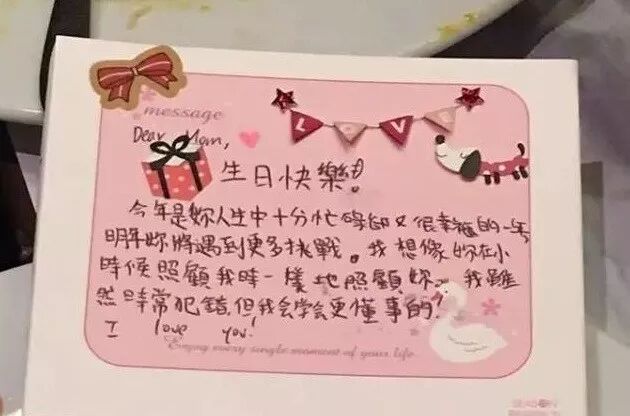 message
Dear Mom,
LOVE
生日快樂!
今年是妳人生中十分忙碌卻又很幸福的一年
明年妳將遇到更多挑戰。我想像妳在小
時候照顧我時一樣地照顧妳。我雖
然時常犯錯,但我会学会更懂事的!
I love you!
Enjoy every single moment of your life